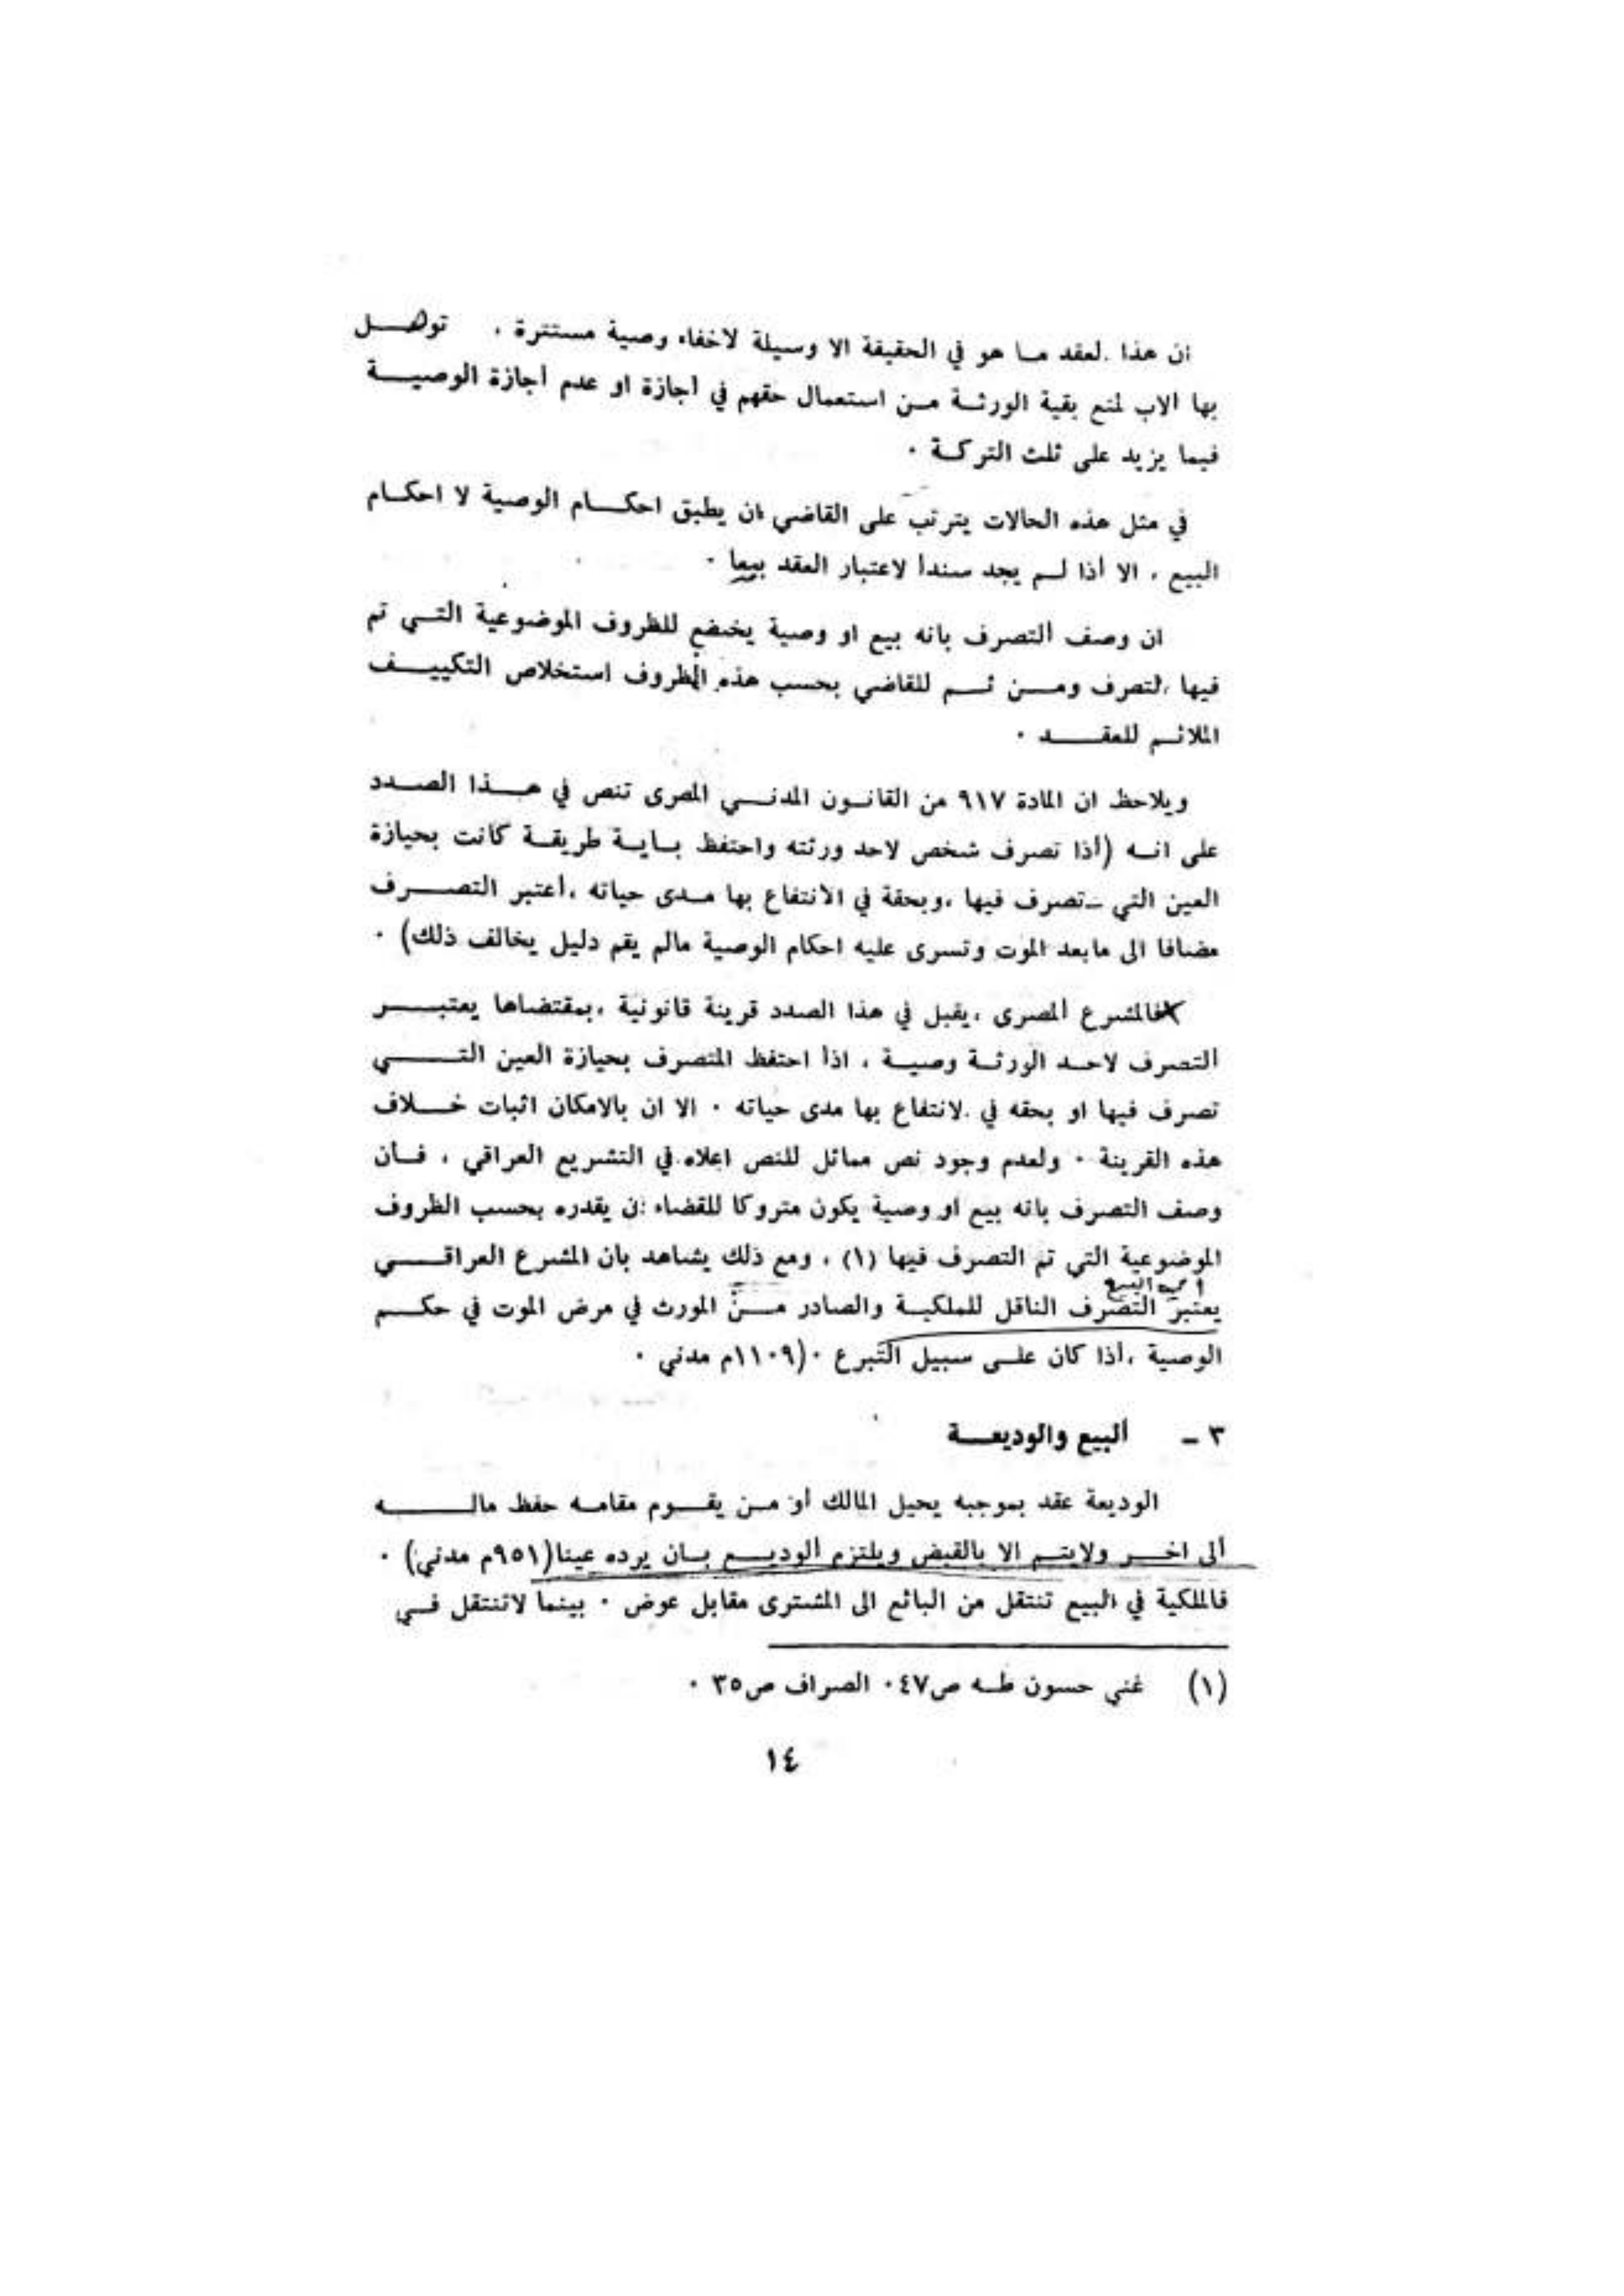 ان هذا لعقد ما هو في الحقيقة الا وسيلة لاخفاء وصية مستترة ، توصل
بها الاب لمنع بقية الورثة من استعمال حقهم في أجازة او عدم أجازة الوصية
فيما يزيد على ثلث التركة ٠
في مثل هذه الحالات يترتب على القاضي ان يطبق احكام الوصية لا احكام
البيع ، الا أذا لم يجد سندا لاعتبار العقد بيعا ٠
ان وصف ألتصرف بانه بيع او وصية يخضع للظروف الموضوعية التي تم
فيها لتصرف ومن ثم للقاضي بحسب هذه الظروف استخلاص التكييف
الملائم للعقد ٠
ويلاحظ ان المادة ٩١٧ من القانون المدني المصرى تنص في هذا الصدد
على انه (أذا تصرف شخص لاحد ورثته واحتفظ باية طريقة كانت بحيازة
العين التي تصرف فيها ،وبحقة في الانتفاع بها مدى حياته ،أعتبر التصرف
مضافا الى مابعد الموت وتسرى عليه احكام الوصية مالم يقم دليل يخالف ذلك) ٠
فالمشرع ألمصرى ،يقبل في هذا الصدد قرينة قانونية ،بمقتضاها يعتبر
ألتصرف لاحد الورثة وصية ، اذأ احتفظ المتصرف بحيازة العين التي
تصرف فيها او بحقه في لانتفاع بها مدى حياته ٠ الا ان بالامكان اثبات خلاف
هذه القرينة ٠ ولعدم وجود نص مماثل للنص اعلاه في التشريع العراقي ، فأن
وصف التصرف بانه بيع او وصية يكون متروكا للقضاء ان يقدره بحسب الظروف
الموضوعية التي تم التصرف فيها (١) ، ومع ذلك يشاهد بان المشرع العراقي
أي البيع
يعتبر التصرف الناقل للملكية والصادر من المورث في مرض الموت في حكم
الوصية ،أذا كان على سبيل التبرع ٠(١١٠٩م مدني ٠
٣ - ألبيع والوديعة
الوديعة عقد بموجبه يحيل المالك أو من يقوم مقامه حفظ ماله
ألى اخر ولايتم الا بالقبض ويلتزم ألوديع بان يرده عينا(٩٥١م مدني) ٠
فالملكية في البيع تنتقل من البائع الى المشترى مقابل عوض ٠ بينما لاتنتقل في
(١) غني حسون طه ص٤٧٠ الصراف ص٣٥ ٠
١٤